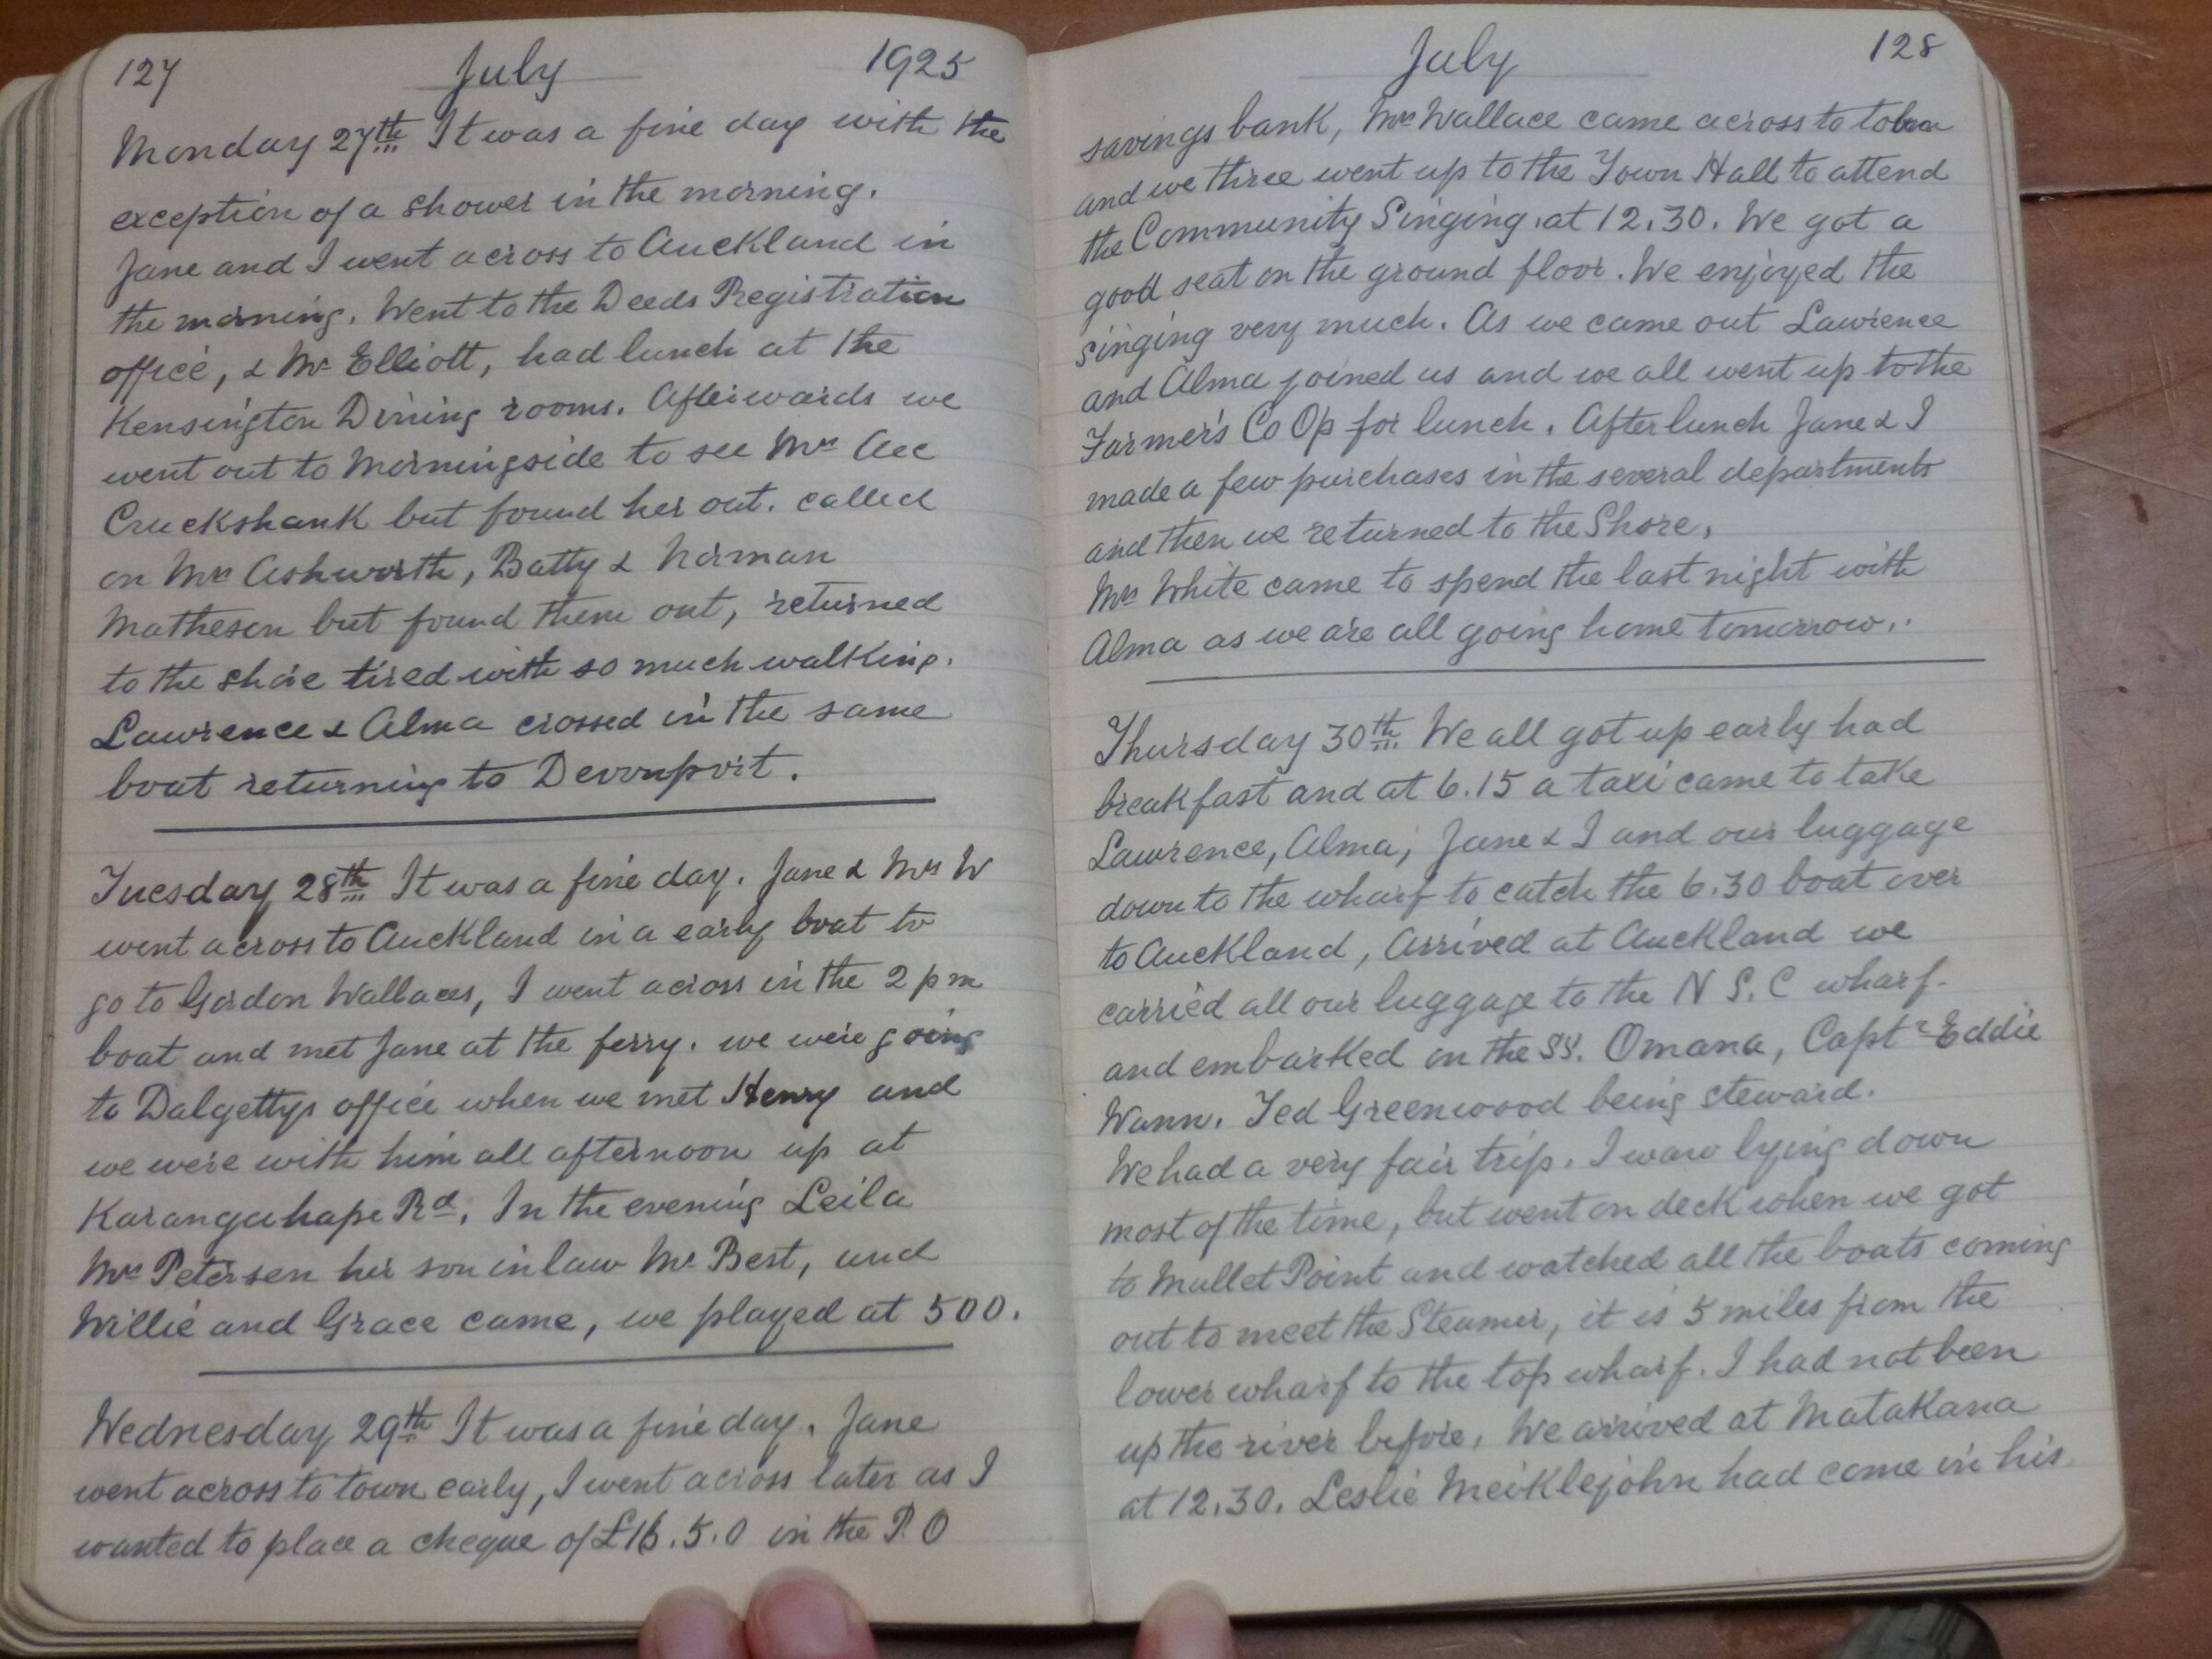 127 July 1925
Monday 27th It was a fine day with the
exception of a shower in the morning.
Jane and I went across to Auckland in
the morning. Went to the Deeds Registration
office, & Mr Elliott, had lunch at the
Kensington Dining rooms. Afterwards we
went out to Morningside to see Mrs Alec
Cruckshank but found her out. called
on Mrs Ashworth, Batty & Norman
Matheson but found them out, returned
to the shore tired with so much walking.
Lawrence & Alma crossed in the same
boat returning to Devonport.
Tuesday 28th It was a fine day. Jane & Mrs W
went across to Auckland in a early boat to
go to Gordon Wallaces, I went across in the 2 pm
boat and met Jane at the ferry. we were going
to Dalgettys office when we met Henry and
we were with him all afternoon up at
Karangahape Rd. In the evening Leila
Mrs Petersen her son in law Mr Best, and
Willie and Grace came, we played at 500.
Wednesday 29th It was a fine day. Jane
went across to town early, I went across later as I
wanted to place a cheque of £16.5.0 in the P.O
July 128
savings bank, Mrs Wallace came across to town
and we three went up to the Town Hall to attend
the Community Singing at 12.30. We got a
good seat on the ground floor. We enjoyed the
singing very much. As we came out Lawrence
and Alma joined us and we all went up to the
Farmer's Co Op for lunch. After lunch Jane & I
made a few purchases in the several departments
and then we returned to the Shore,
Mrs White came to spend the last night with
Alma as we are all going home tomorrow..
Thursday 30th We all got up early had
breakfast and at 6.15 a taxi came to take
Lawrence, Alma, Jane & I and our luggage
down to the wharf to catch the 6.30 boat over
to Auckland, Arrived at Auckland we
carried all our luggage to the N S.C wharf.
and embarked on the SS. Omana, Captn Eddie
Wann. Ted Greenwood being steward.
We had a very fair trip. I was lying down
most of the time, but went on deck when we got
to Mullet Point and watched all the boats coming
out to meet the Steamer, it is 5 miles from the
lower wharf to the top wharf. I had not been
up the river before. We arrived at Matakana
at 12.30. Leslie Meiklejohn had come in his